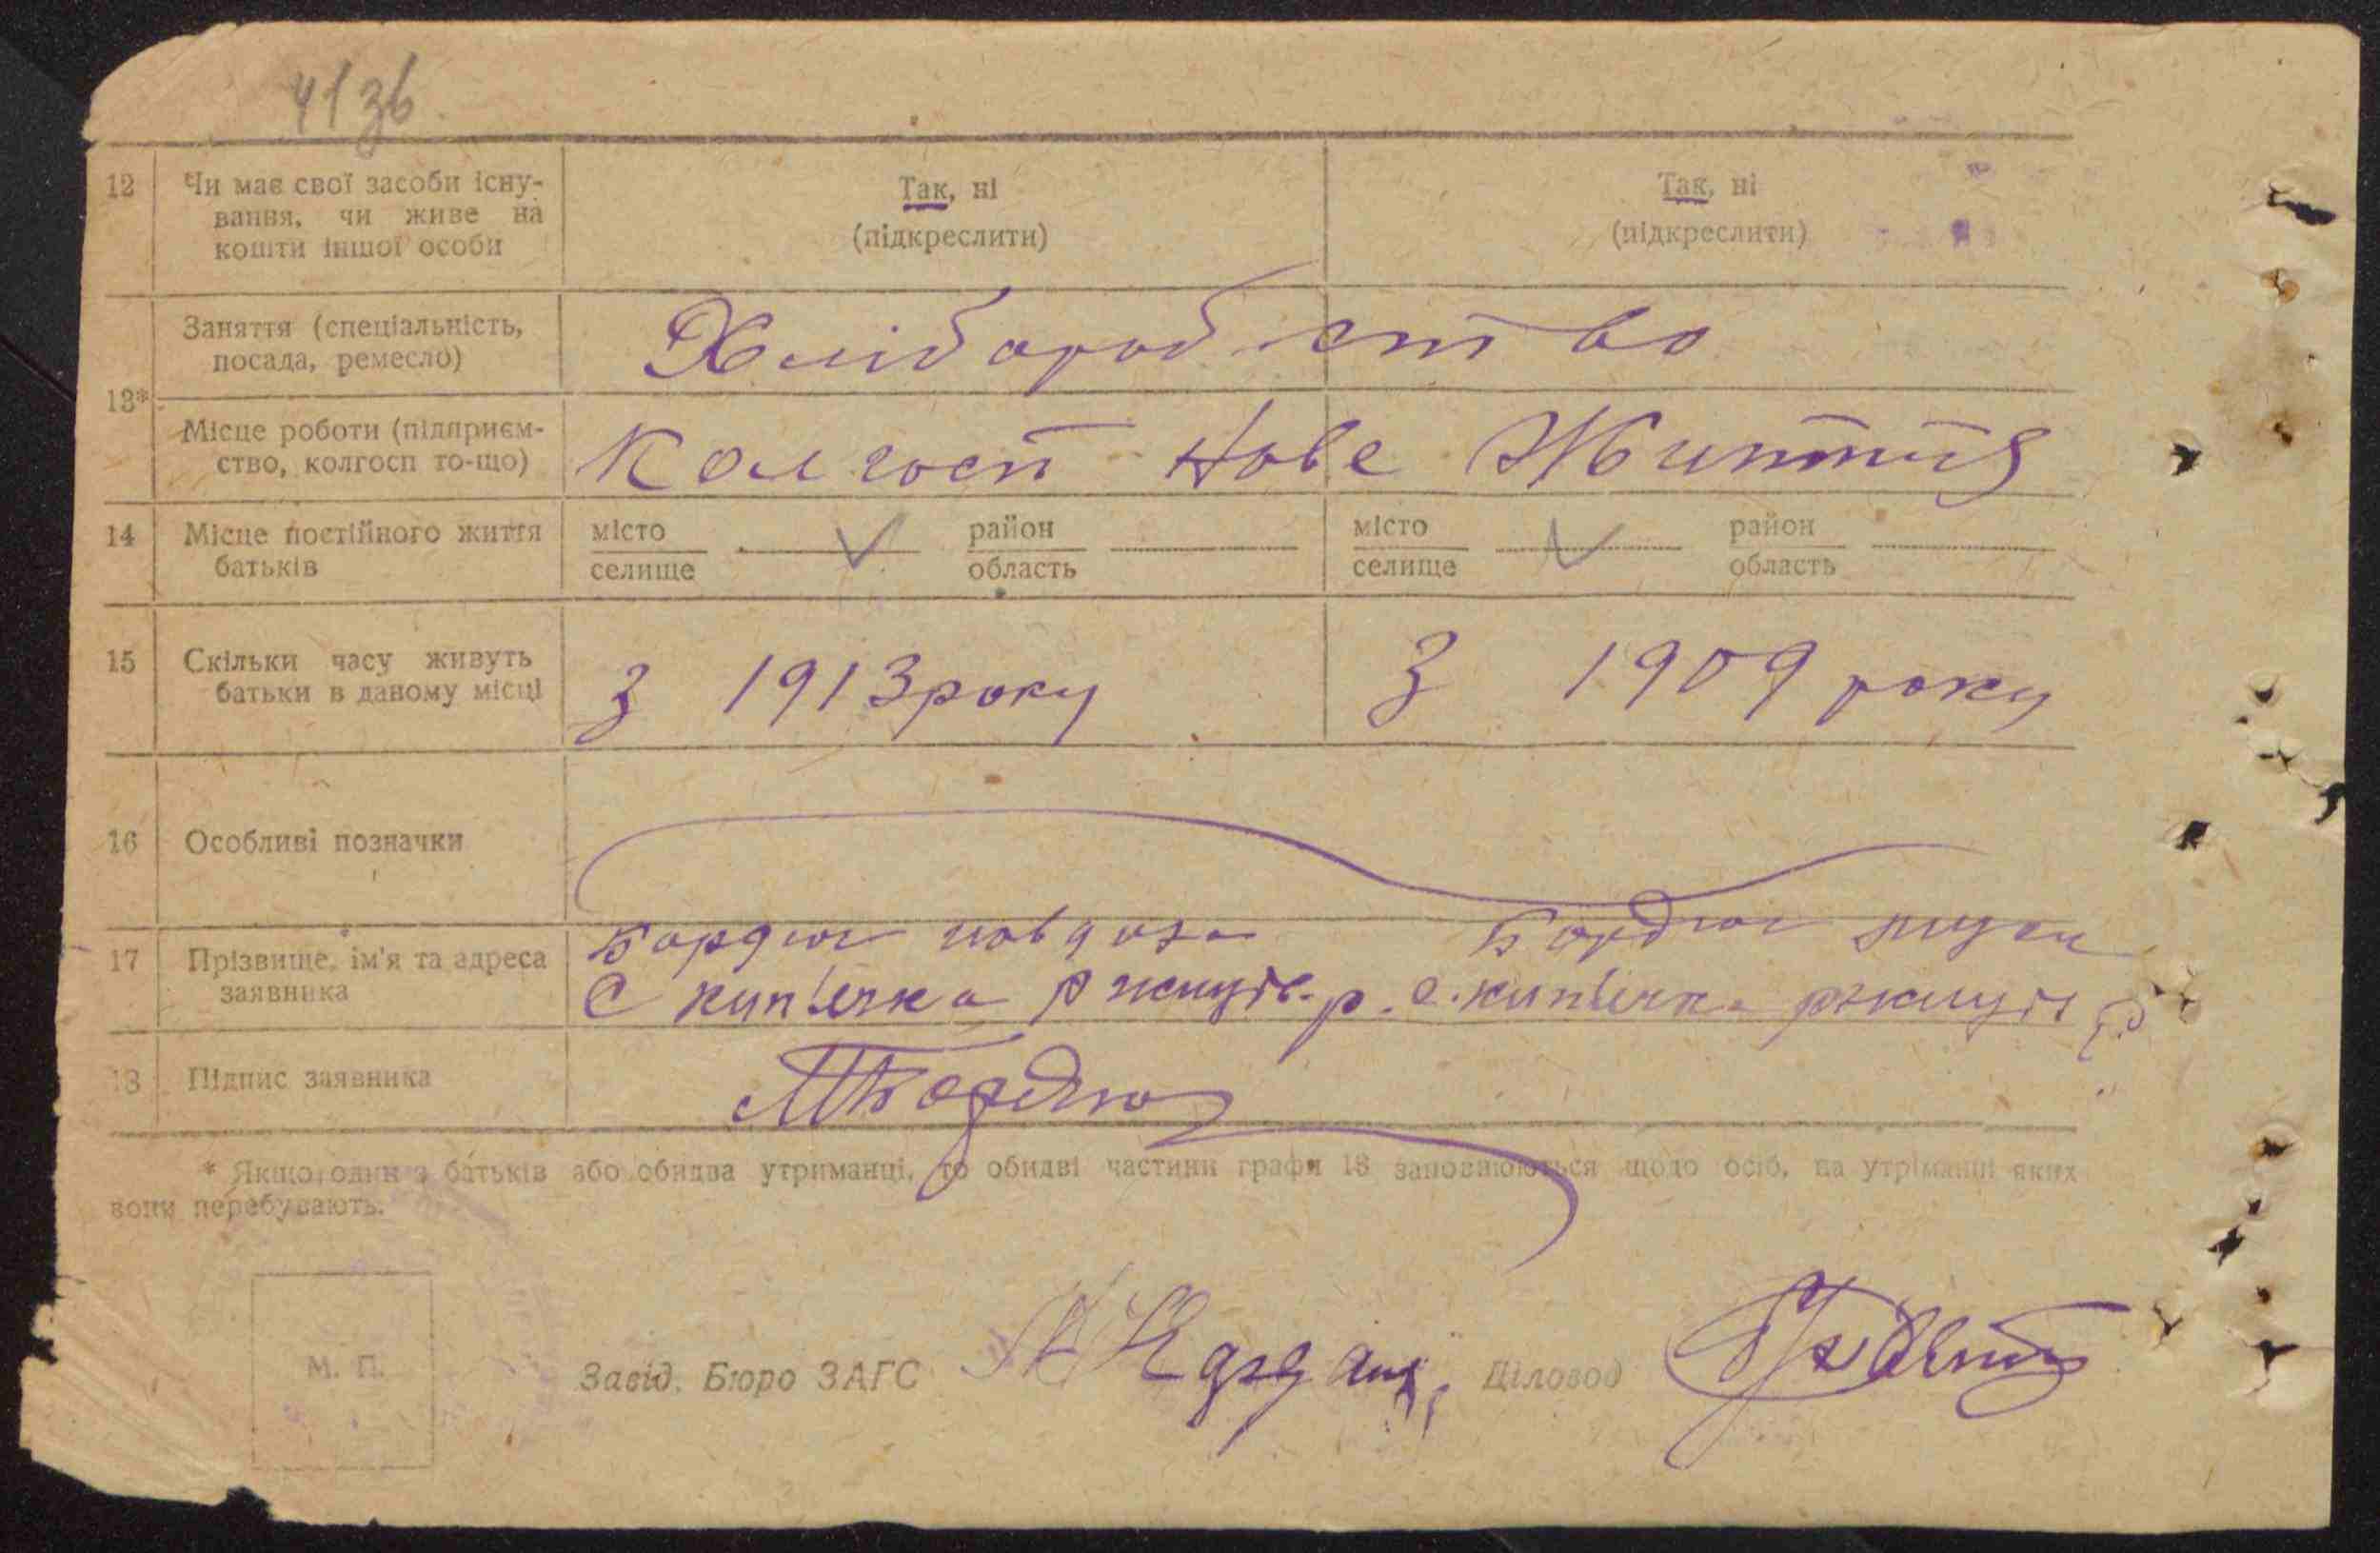 41 зв
12 Чи має свої засоби існу-
вання, чи живе на
кошти іншої особи
Так, ні
(підкреслити)
Так, ні
(підкреслити)
13*
Заняття (спеціальність,
посада, ремесло)
Хліборобство
Місце роботи (підприєм-
ство, колгосп то-що)
Колгосп Нове Життя
14 Місце постійного життя
батьків
місто
селище
район
область
місто
селище
район
область
15 Скільки часу живуть
батьки в даному місці
З 1913 року
З 1909 року
16 Особливі позначки
17 Прізвище, ім'я та адреса
заявника
Бордюг Бордюг
С кип'ячка р. с. кип'ячка
18 Підпис заявника
МБордюг
* Якщо один з батьків або обидва утриманці, то обидві частини графи 13 заповнюються щодо осіб, на утріманні яких
вони перебувають.
М. П.
Завід. Бюро ЗАГС
Діловод